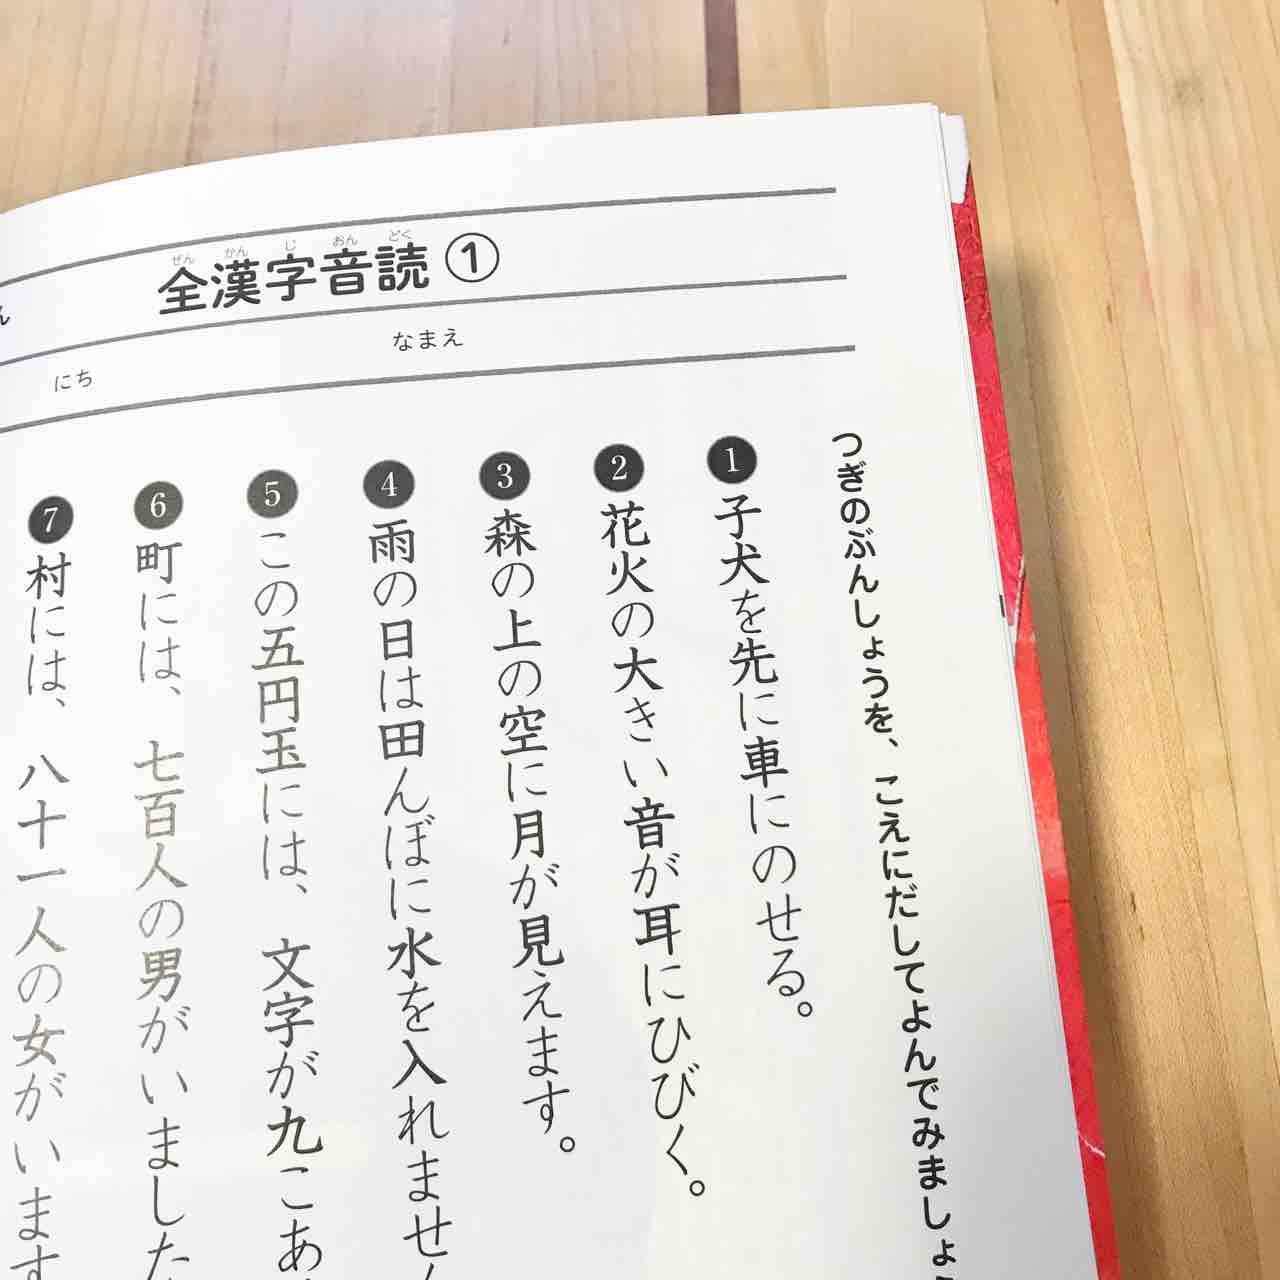 全漢字音読①
ぜんかんじおんどく
なまえ
にち
つぎのぶんしょうを、こえにだしてよんでみましょ
1 子犬を先に車にのせる。
2 花火の大きい音が耳にひびく。
3 森の上の空に月が見えます。
4 雨の日は田んぼに水を入れませ
5 この五円玉には、文字が九こあ
6 町には、七百人の男がいました
7 村には、八十一人の女がいます